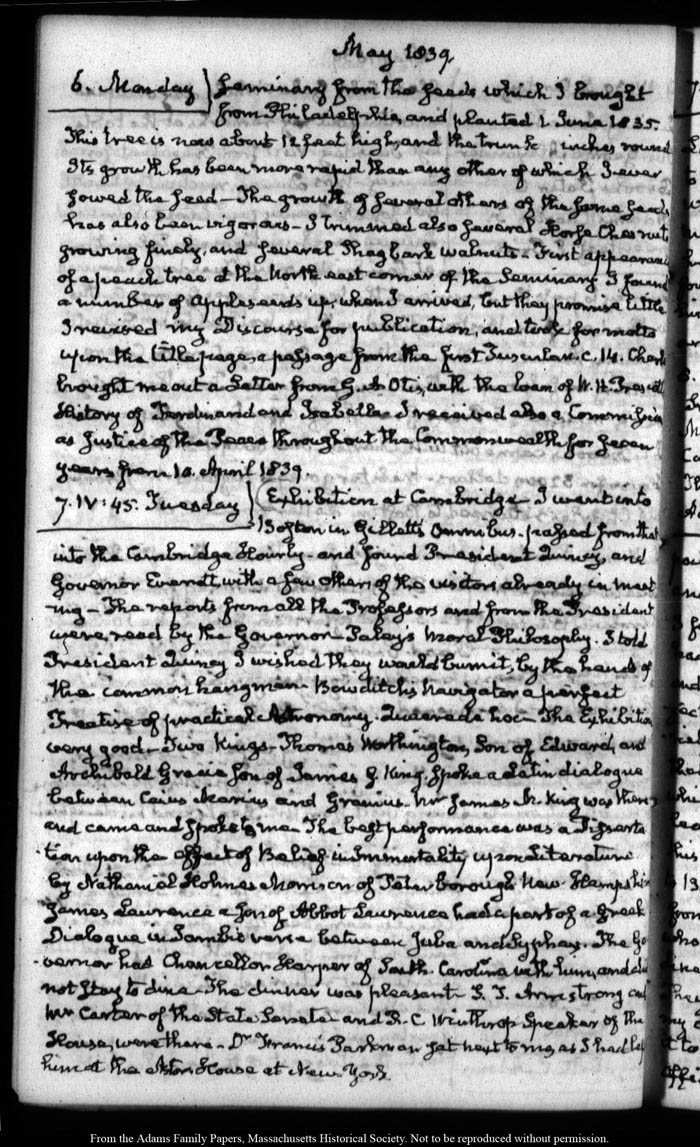 May 1839.
6. Monday} Seminary from the seeds which I brought
from Philadelphia, and planted 1 June 1835.
This tree is now about 12 feet high, and the trunk inches round
Its growth has been more rapid than any other of which I ever
sowed the seed — The growth of several others of the same seeds
has also been vigorous — I trimmed also several Horse Chesnuts
growing finely, and several Shagbark walnuts — First appearance
of a peach tree at the North east corner of the Seminary I found
a number of Appleseeds up, when I arrived, but they promise little
I revised my Discourse for publication, and took for motto
upon the title page, a passage from the first Tusculan. c. 14. Charles
brought me out a Letter from G. A Otis, with the loan of W. H. Prescott
History of Ferdinand and Isabella. I received also a Commission
as Justice of the Peace throughout the Commonwealth for seven
years from 10. April 1839.
7. IV:45. Tuesday} Exhibition at Cambridge — I went into
Boston in Gillett's Omnibus. passed from that
into the Cambridge Hourly — and found President Quincy, and
Governor Everett, with a few others of the visitors already in meet
ing — The reports from all the Professors and from the President
were read by the Governor — Paley's Moral Philosophy. I told
President Quincy I wished they would burn it, by the hands of
the common hangman. Bowditch's Navigator a perfect
Treatise of practical Astronomy. Quære de hoc — The Exhibition
very good — Two Kings — Thomas Worthington, Son of Edward, and
Archibald Gracie Son of James G. King, spoke a Latin dialogue
between Caius Marius and Granius. Mr James G. King was there
and came and spoke to me. The best performance was a Disserta
tion upon the effect of Belief in Immortality upon Literature
by Nathaniel Holmes Morison of Peterborough New Hampshire
James Lawrence a Son of Abbot Lawrence had a part of a Greek
Dialogue in Iambic verse between Juba and Syphax. The Go
vernor had Chancellor Harper of South. Carolina with him, and did
not stay to dine — The dinner was pleasant S. T. Armstrong and
Mr Carter of the State Senate and R. C Winthrop Speaker of the
House, were there — Dr Francis Parkman sat next to me, as I had left
him at the Astor House at New York
From the Adams Family Papers, Massachusetts Historical Society. Not to be reproduced without permission.